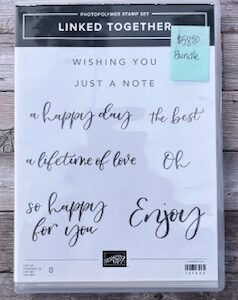 PHOTOPOLYMER STAMP SET
LINKED TOGETHER
$58.50
Bundle
WISHING YOU
JUST A NOTE
a happy day
the best
a lifetime of love
Oh
so happy
for you
Enjoy
8
STAMPIN' UP!